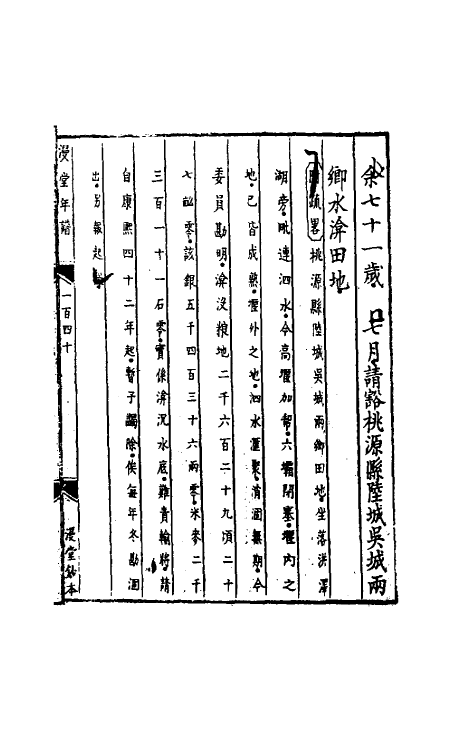 余七十一歲 七月請豁桃源縣陸城吳城兩
鄉水渰田地
疏畧桃源縣陸城吳城兩鄉田地坐落洪澤
湖旁毗連泗水今高堰加幫六壩閉塞堰內之
地已皆成熟堰外之地泗水滙聚消涸無期今
委員勘明渰沒粮地二千六百二十九頃二十
七畝零該銀五千四百三十六兩零米麥二千
三百一十一石零實係渰沉水底難責輸將請
自康熙四十二年起暫予蠲除俟每年冬勘涸
出另報起
漫堂年譜
一百四十
漫堂鈔本